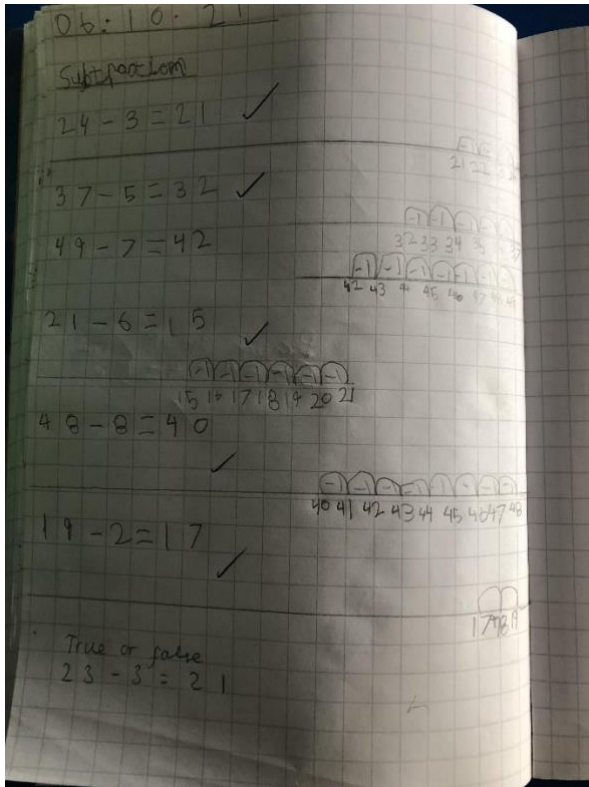 06.10.21
Subtraction
24 - 3 = 21
21 22
37 - 5 = 32
-1 -1
32 33 34 35
49 - 7 = 42
-1 -1 -1 -1 -1
42 43 45 46 47
21 - 6 = 15
-1 -1 -1 -1 -1 -1
15 16 17 18 19 20 21
48 - 8 = 40
-1 -1 -1 -1 -1 -1 -1 -1
40 41 42 43 44 45 46 47 48
19 - 2 = 17
17 18 19
True or false
23 - 3 = 21